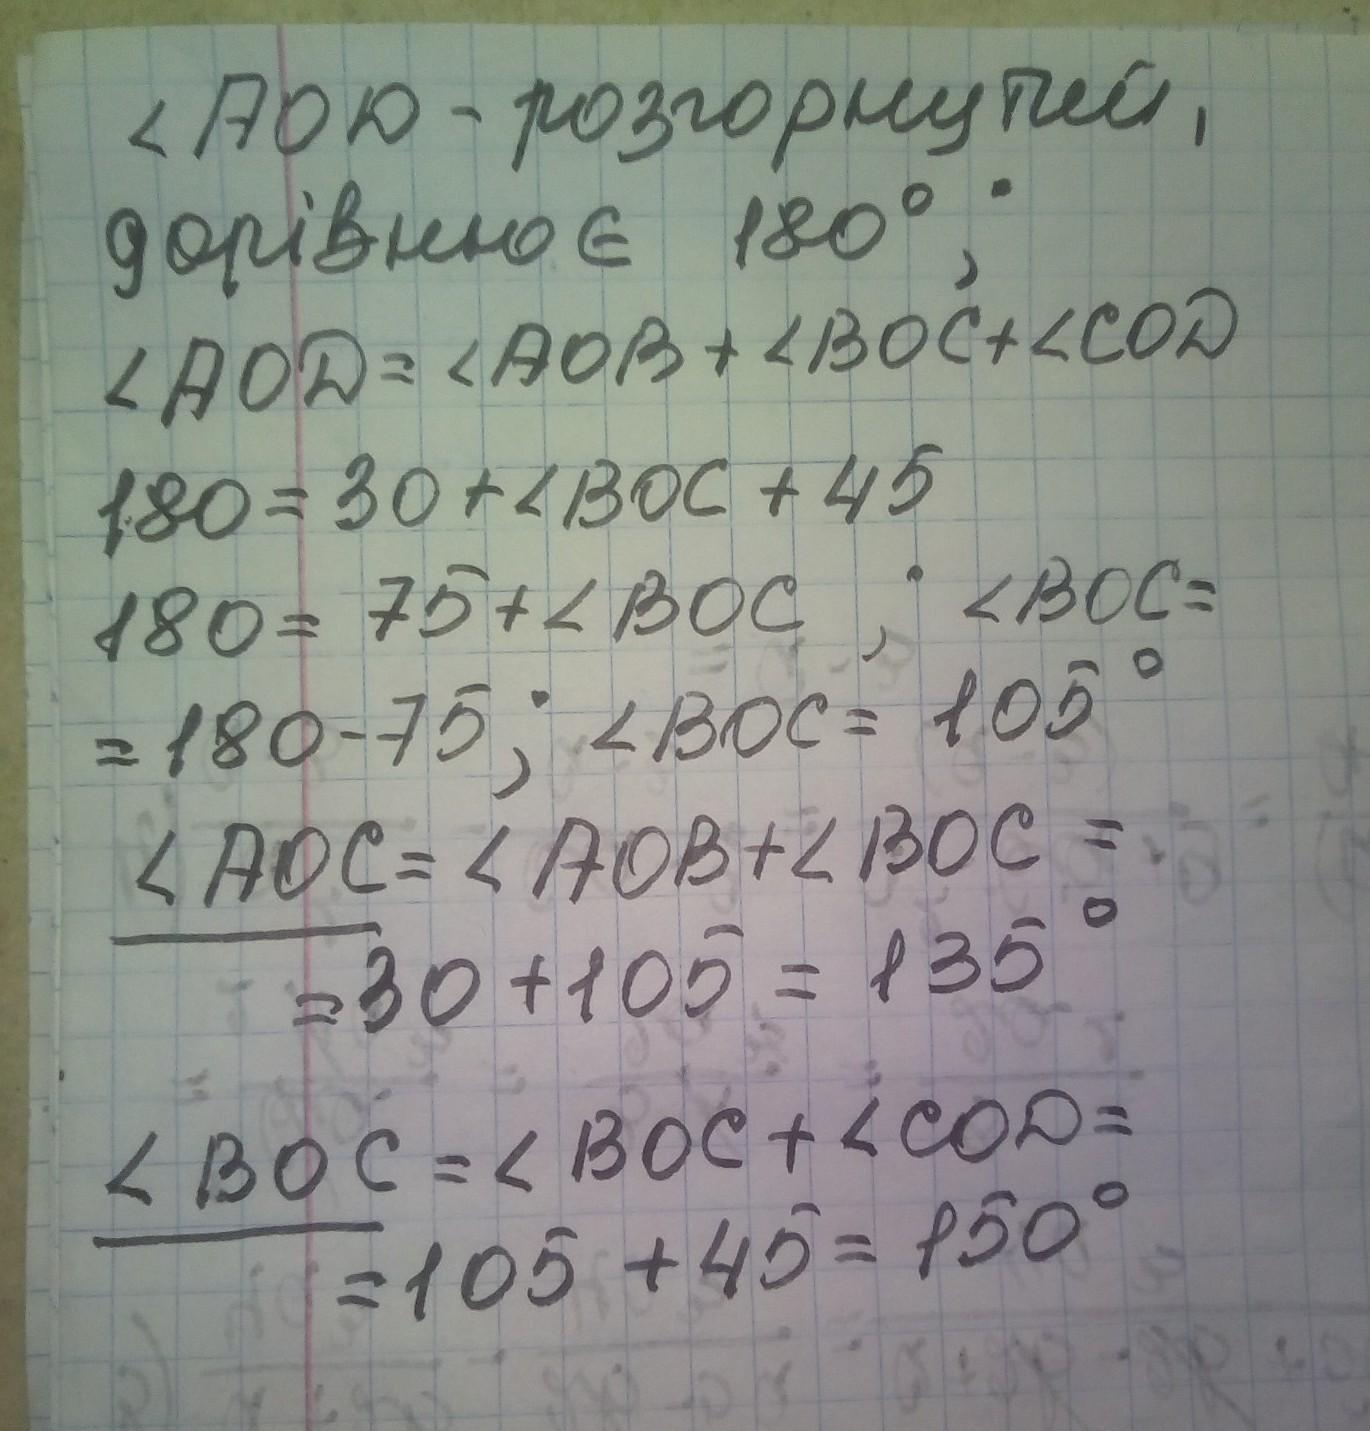 ∠AOD - розгорнутий,
дорівнює 180°;
∠AOD = ∠AOB + ∠BOC + ∠COD
180 = 30 + ∠BOC + 45
180 = 75 + ∠BOC ; ∠BOC =
= 180 - 75 ; ∠BOC = 105°
∠AOC = ∠AOB + ∠BOC =
= 30 + 105 = 135°
∠BOC = ∠BOC + ∠COD =
= 105 + 45 = 150°